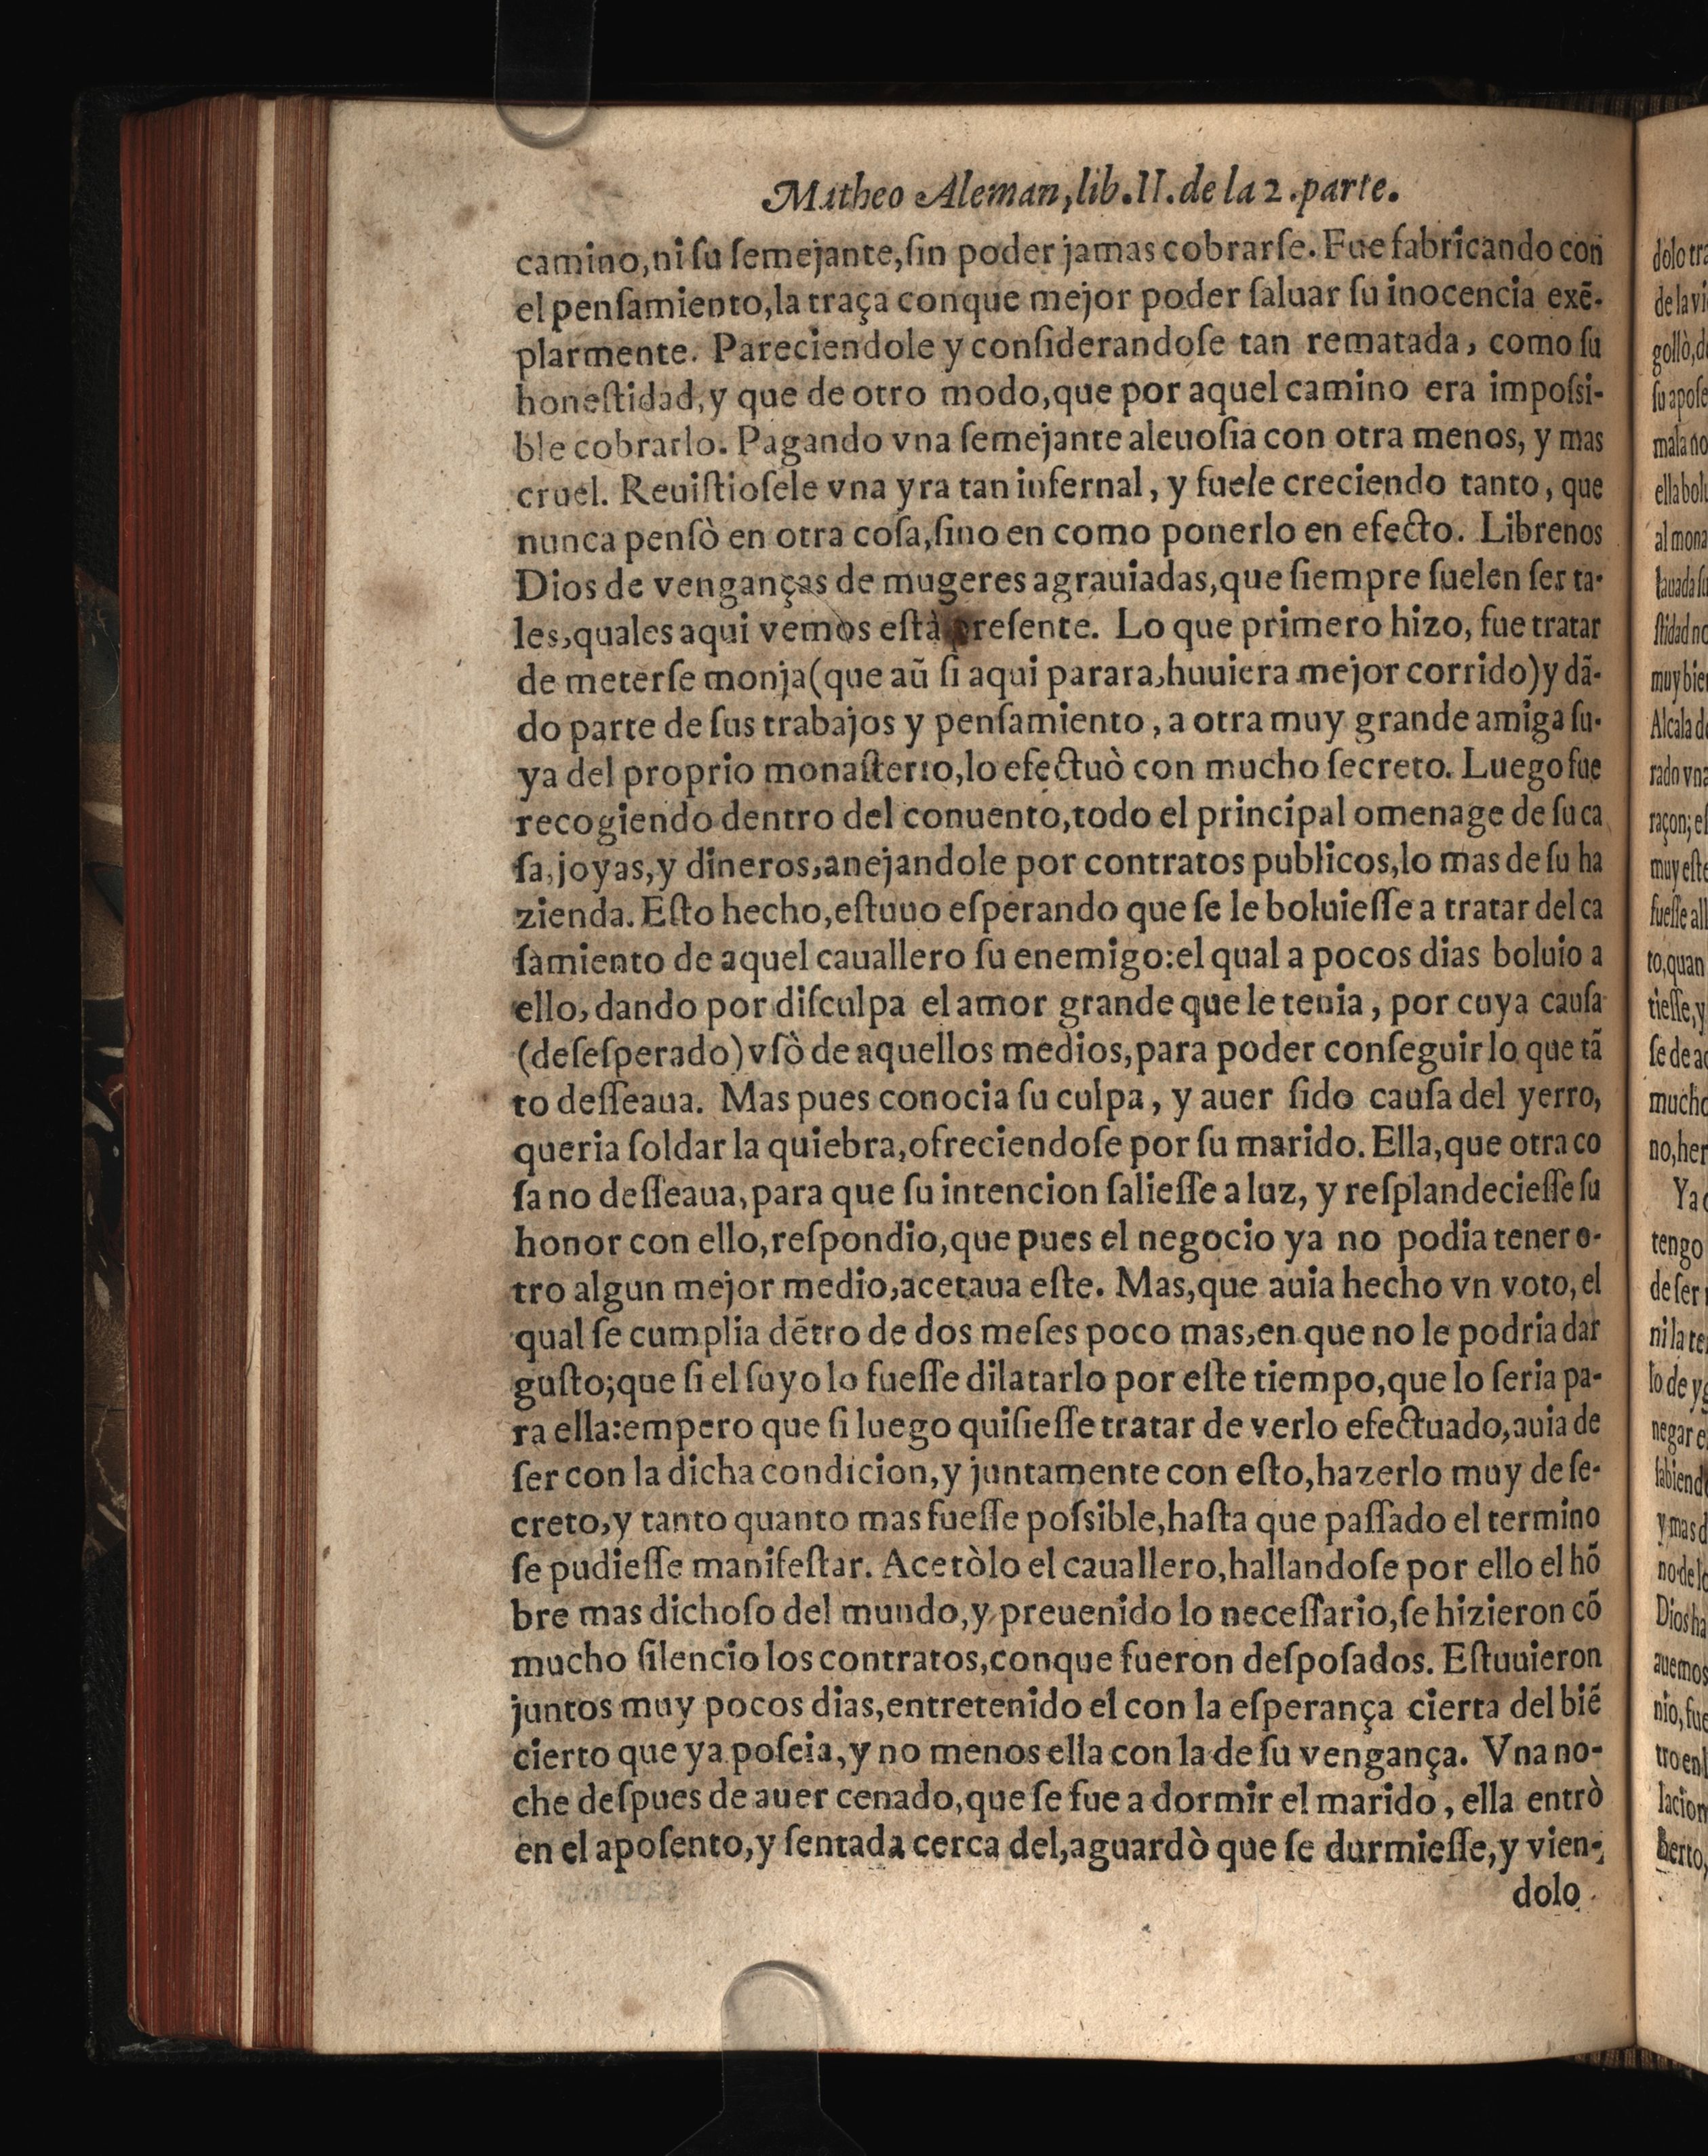 Matheo Aleman, lib. II. de la 2. parte.
camino, ni ſu ſemejante, ſin poder jamas cobrarſe. Fue fabricando con
el penſamiento, la traça conque mejor poder ſaluar ſu inocencia exẽ-
plarmente. Pareciendole y conſiderandoſe tan rematada, como ſu
honeſtidad, y que de otro modo, que por aquel camino era impoſsi-
ble cobrarlo. Pagando vna ſemejante aleuoſia con otra menos, y mas
cruel. Reuiſtioſele vna yra tan infernal, y fuele creciendo tanto, que
nunca penſò en otra coſa, ſino en como ponerlo en efecto. Librenos
Dios de venganças de mugeres agrauiadas, que ſiempre ſuelen ſer ta-
les, quales aqui vemos eſtà preſente. Lo que primero hizo, fue tratar
de meterſe monja (que aũ ſi aqui parara, huuiera mejor corrido) y dã-
do parte de ſus trabajos y penſamiento, a otra muy grande amiga ſu-
ya del proprio monaſterio, lo efectuò con mucho ſecreto. Luego fue
recogiendo dentro del conuento, todo el principal omenage de ſu ca
ſa, joyas, y dineros, anejandole por contratos publicos, lo mas de ſu ha
zienda. Eſto hecho, eſtuuo eſperando que ſe le boluieſſe a tratar del ca
ſamiento de aquel cauallero ſu enemigo: el qual a pocos dias boluio a
ello, dando por diſculpa el amor grande que le tenia, por cuya cauſa
(deſeſperado) vſò de aquellos medios, para poder conſeguir lo que tã
to deſſeaua. Mas pues conocia ſu culpa, y auer ſido cauſa del yerro,
queria ſoldar la quiebra, ofreciendoſe por ſu marido. Ella, que otra co
ſa no deſſeaua, para que ſu intencion ſalieſſe a luz, y reſplandecieſſe ſu
honor con ello, reſpondio, que pues el negocio ya no podia tener o-
tro algun mejor medio, acetaua eſte. Mas, que auia hecho vn voto, el
qual ſe cumplia dẽtro de dos meſes poco mas, en que no le podria dar
guſto; que ſi el ſuyo lo fueſſe dilatarlo por eſte tiempo, que lo ſeria pa-
ra ella: empero que ſi luego quiſieſſe tratar de verlo efectuado, auia de
ſer con la dicha condicion, y juntamente con eſto, hazerlo muy de ſe-
creto, y tanto quanto mas fueſſe poſsible, haſta que paſſado el termino
ſe pudieſſe manifeſtar. Acetòlo el cauallero, hallandoſe por ello el hõ
bre mas dichoſo del mundo, y preuenido lo neceſſario, ſe hizieron cõ
mucho ſilencio los contratos, conque fueron deſpoſados. Eſtuuieron
juntos muy pocos dias, entretenido el con la eſperança cierta del biẽ
cierto que ya poſeia, y no menos ella con la de ſu vengança. Vna no-
che deſpues de auer cenado, que ſe fue a dormir el marido, ella entrò
en el apoſento, y ſentada cerca del, aguardò que ſe durmieſſe, y vien-
dolo